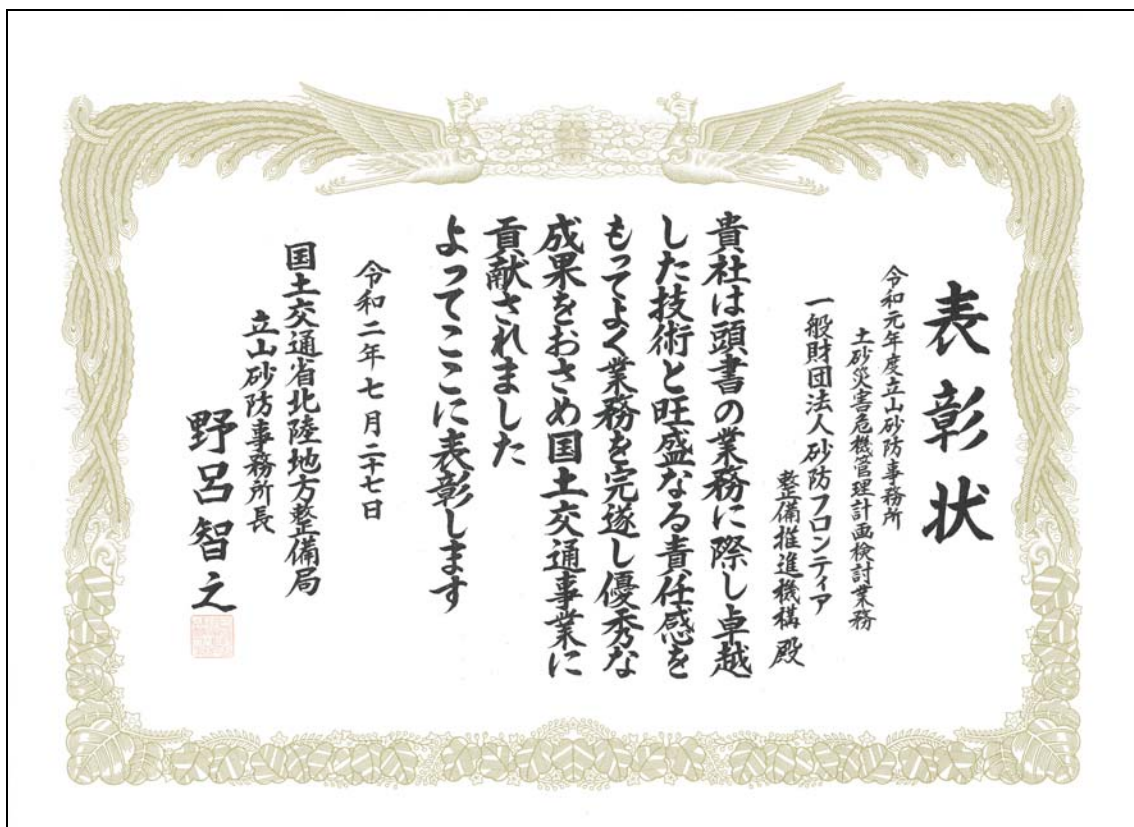 表彰状
令和元年度立山砂防事務所
土砂災害危機管理計画検討業務
一般財団法人砂防フロンティア
整備推進機構 殿
貴社は頭書の業務に際し卓越
した技術と旺盛なる責任感を
もってよく業務を完遂し優秀な
成果をおさめ国土交通事業に
貢献されました
よってここに表彰します
令和二年七月二十七日
国土交通省北陸地方整備局
立山砂防事務所長
野呂智之